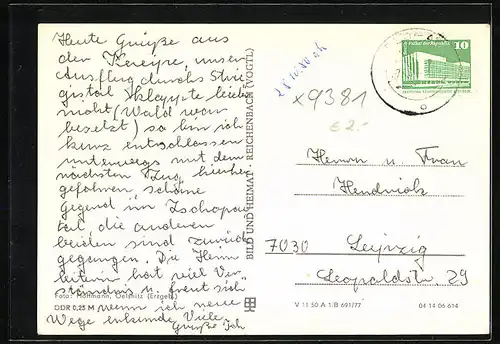 Heute Grüße aus
der Kneipe, unser
Ausflug durchs Strie-
gistal klappte leider
nicht (Wald war
besetzt) so bin ich
kurz entschlossen
unterwegs mit dem
nächsten Zug hierher
gefahren, schöne
Gegend im Zschopau-
tal, die anderen
beiden sind zurück
gegangen. Die Heim-
leiterin hat viel Ver-
ständnis u. freut sich
wenn ich neue
Wege erkunde. Viele
Grüße Ich
Foto: Hoffmann, Oelsnitz (Erzgeb.)
DDR 0,25 M
BILD UND HEIMAT · REICHENBACH (VOGTL)
x9381
€ 2.-
Palast der Republik
10
Herrn u. Frau
7030 Leipzig
Leopoldstr. 29
V 11 50 A 1/B 691/77
04 14 06 614